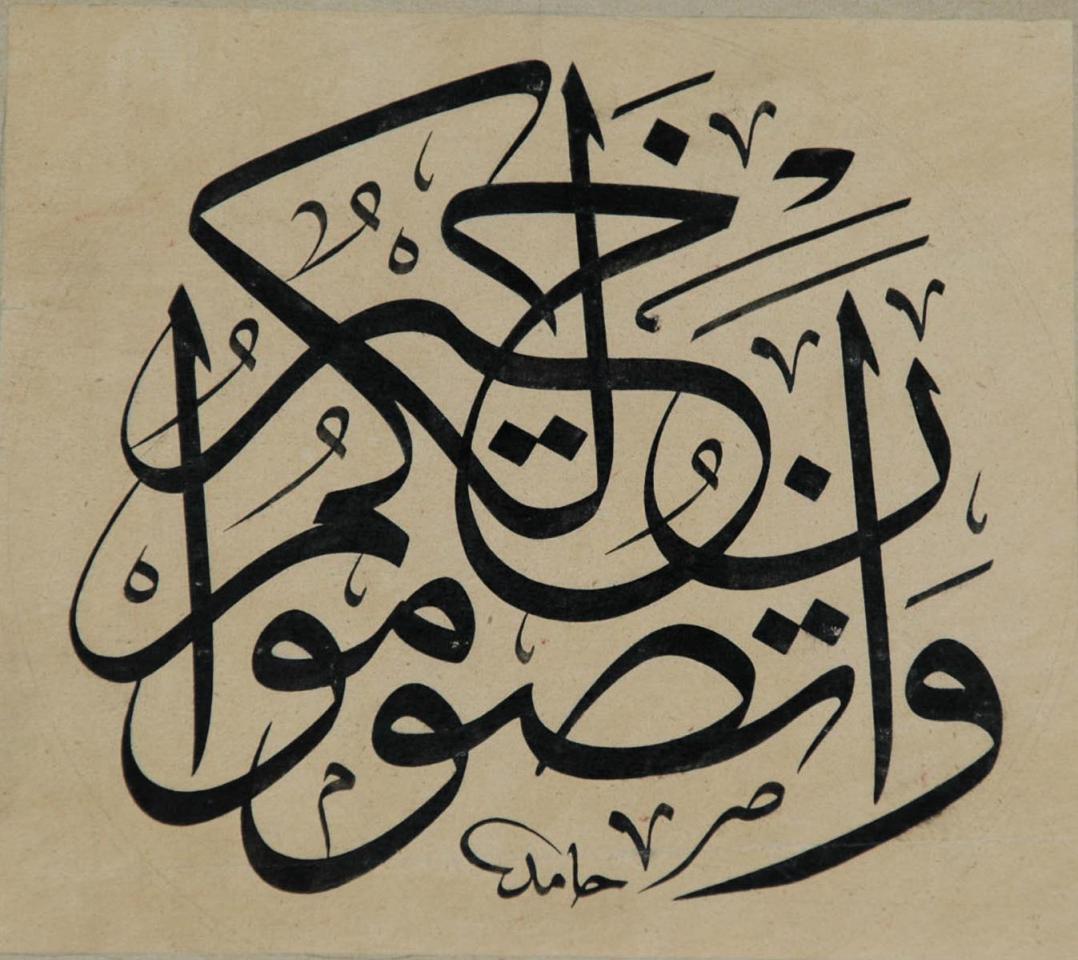 وَأَنْ تَصُومُوا خَيْرٌ لَكُمْ
حامد